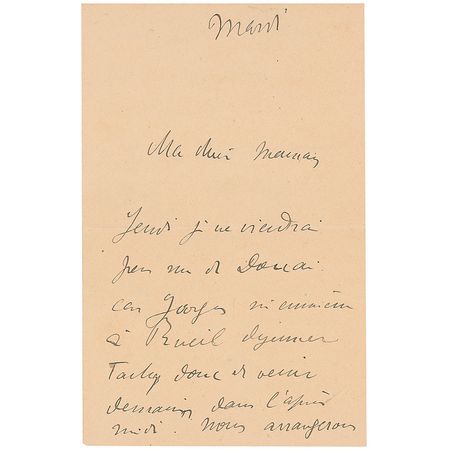 Mardi
Ma chère maman
Jeudi je ne viendrai
pas rue de Douai
car Georges m'emmène
à Rueil déjeuner
Tachez donc de venir
demain dans l'après
midi. Nous arrangerons